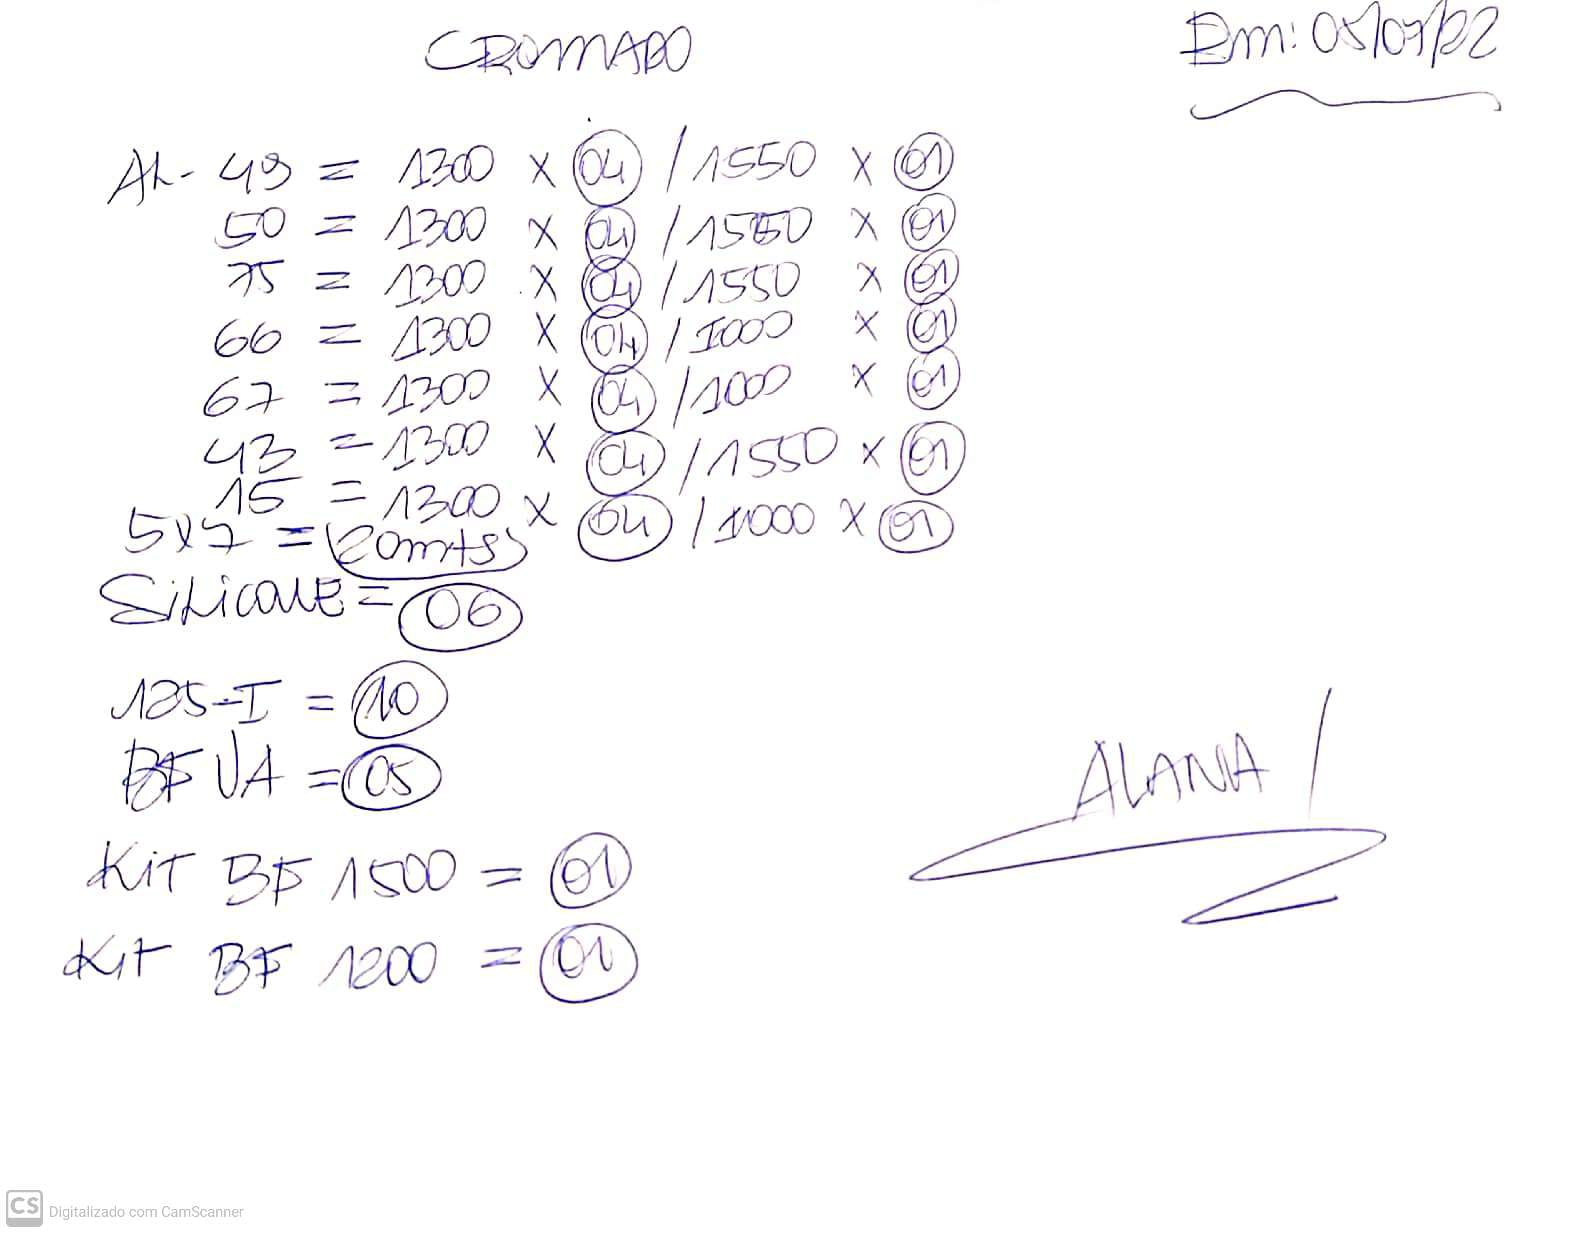 CROMADO
Em: 05/07/22
AL- 49 = 1300 x 04 / 1550 x 01
50 = 1300 x 04 / 1550 x 01
75 = 1300 x 04 / 1550 x 01
66 = 1300 x 04 / 1000 x 01
67 = 1300 x 04 / 1000 x 01
43 = 1300 x 04 / 1550 x 01
15 = 1300 x 04 / 1000 x 01
5x7 = 20mts
SiLicONE = 06
125-I = 10
BF VA = 05
KiT BF 1500 = 01
Kit BF 1200 = 01
ALANA
CS Digitalizado com CamScanner